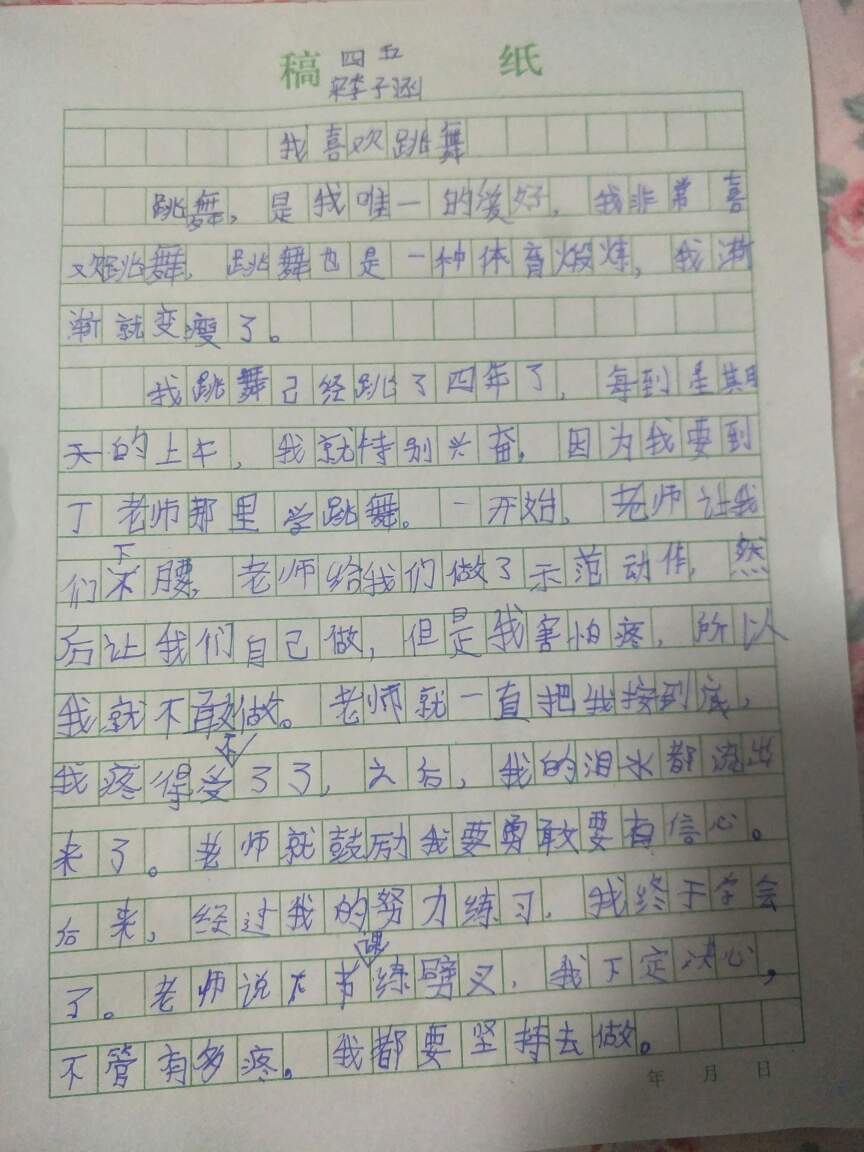 稿 四五 纸
李子涵
我喜欢跳舞
跳舞，是我唯一的爱好，我非常喜
欢跳舞，跳舞也是一种体育煅炼，我渐
渐就变瘦了。
我跳舞已经跳了四年了，每到星期
天的上午，我就特别兴奋，因为我要到
丁老师那里学跳舞。一开始，老师让我
们下腰，老师给我们做了示范动作，然
后让我们自己做，但是我害怕疼，所以
我就不敢做。老师就一直把我按到底，
我疼得受不了了，之后，我的泪水都流出
来了。老师就鼓励我要勇敢要有信心。
后来，经过我的努力练习，我终于学会
了。老师说下节课练劈叉，我下定决心，
不管有多疼。我都要坚持去做。
年 月 日